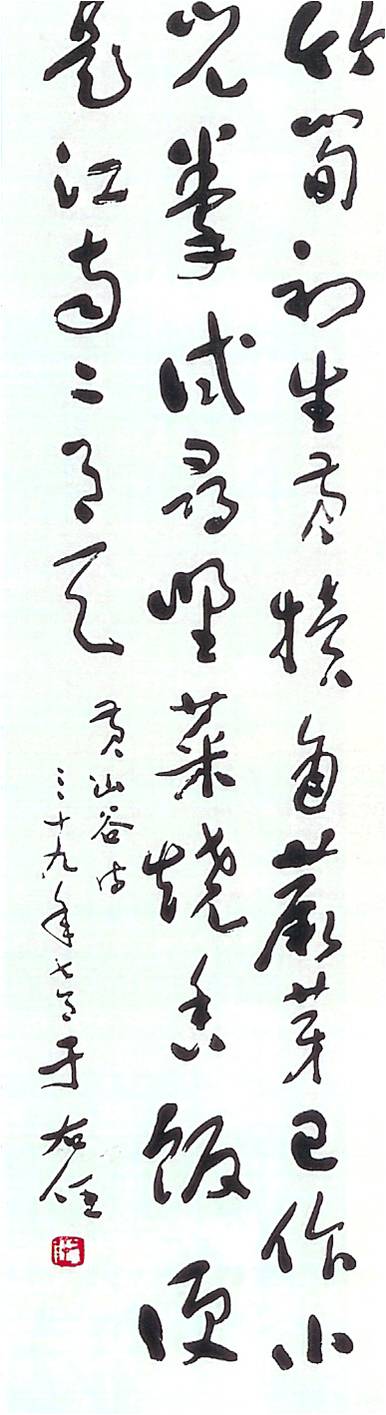 竹筍初生黃犢角蕨芽已作小
兒拳試尋野菜燒香飯便
是江南二月天
黃山谷詩
三十九年七月于右任